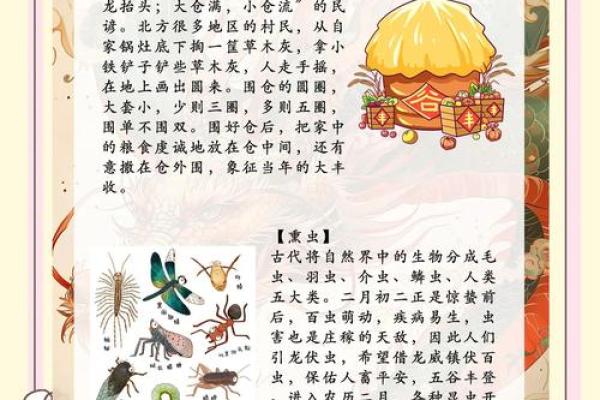 龙抬头；大仓满，小仓流”的民
谚。北方很多地区的村民，从自
家锅灶底下掏一筐草木灰，拿小
铁铲子铲些草木灰，人走手摇，
在地上画出圆来。围仓的圆圈，
大套小，少则三圈，多则五圈，
围单不围双。围好仓后，把家中
的粮食虔诚地放在仓中间，还有
意撒在仓外围，象征当年的大丰
收。
仓
丰
丰
【熏虫】
古代将自然界中的生物分成毛
虫、羽虫、介虫、鳞虫、人类
五大类。二月初二正是惊蛰前
后，百虫萌动，疾病易生，虫
害也是庄稼的天敌，因此人们
引龙伏虫，希望借龙威镇伏百
虫，保佑人畜平安，五谷丰登
。进入农历二月，各种昆虫开